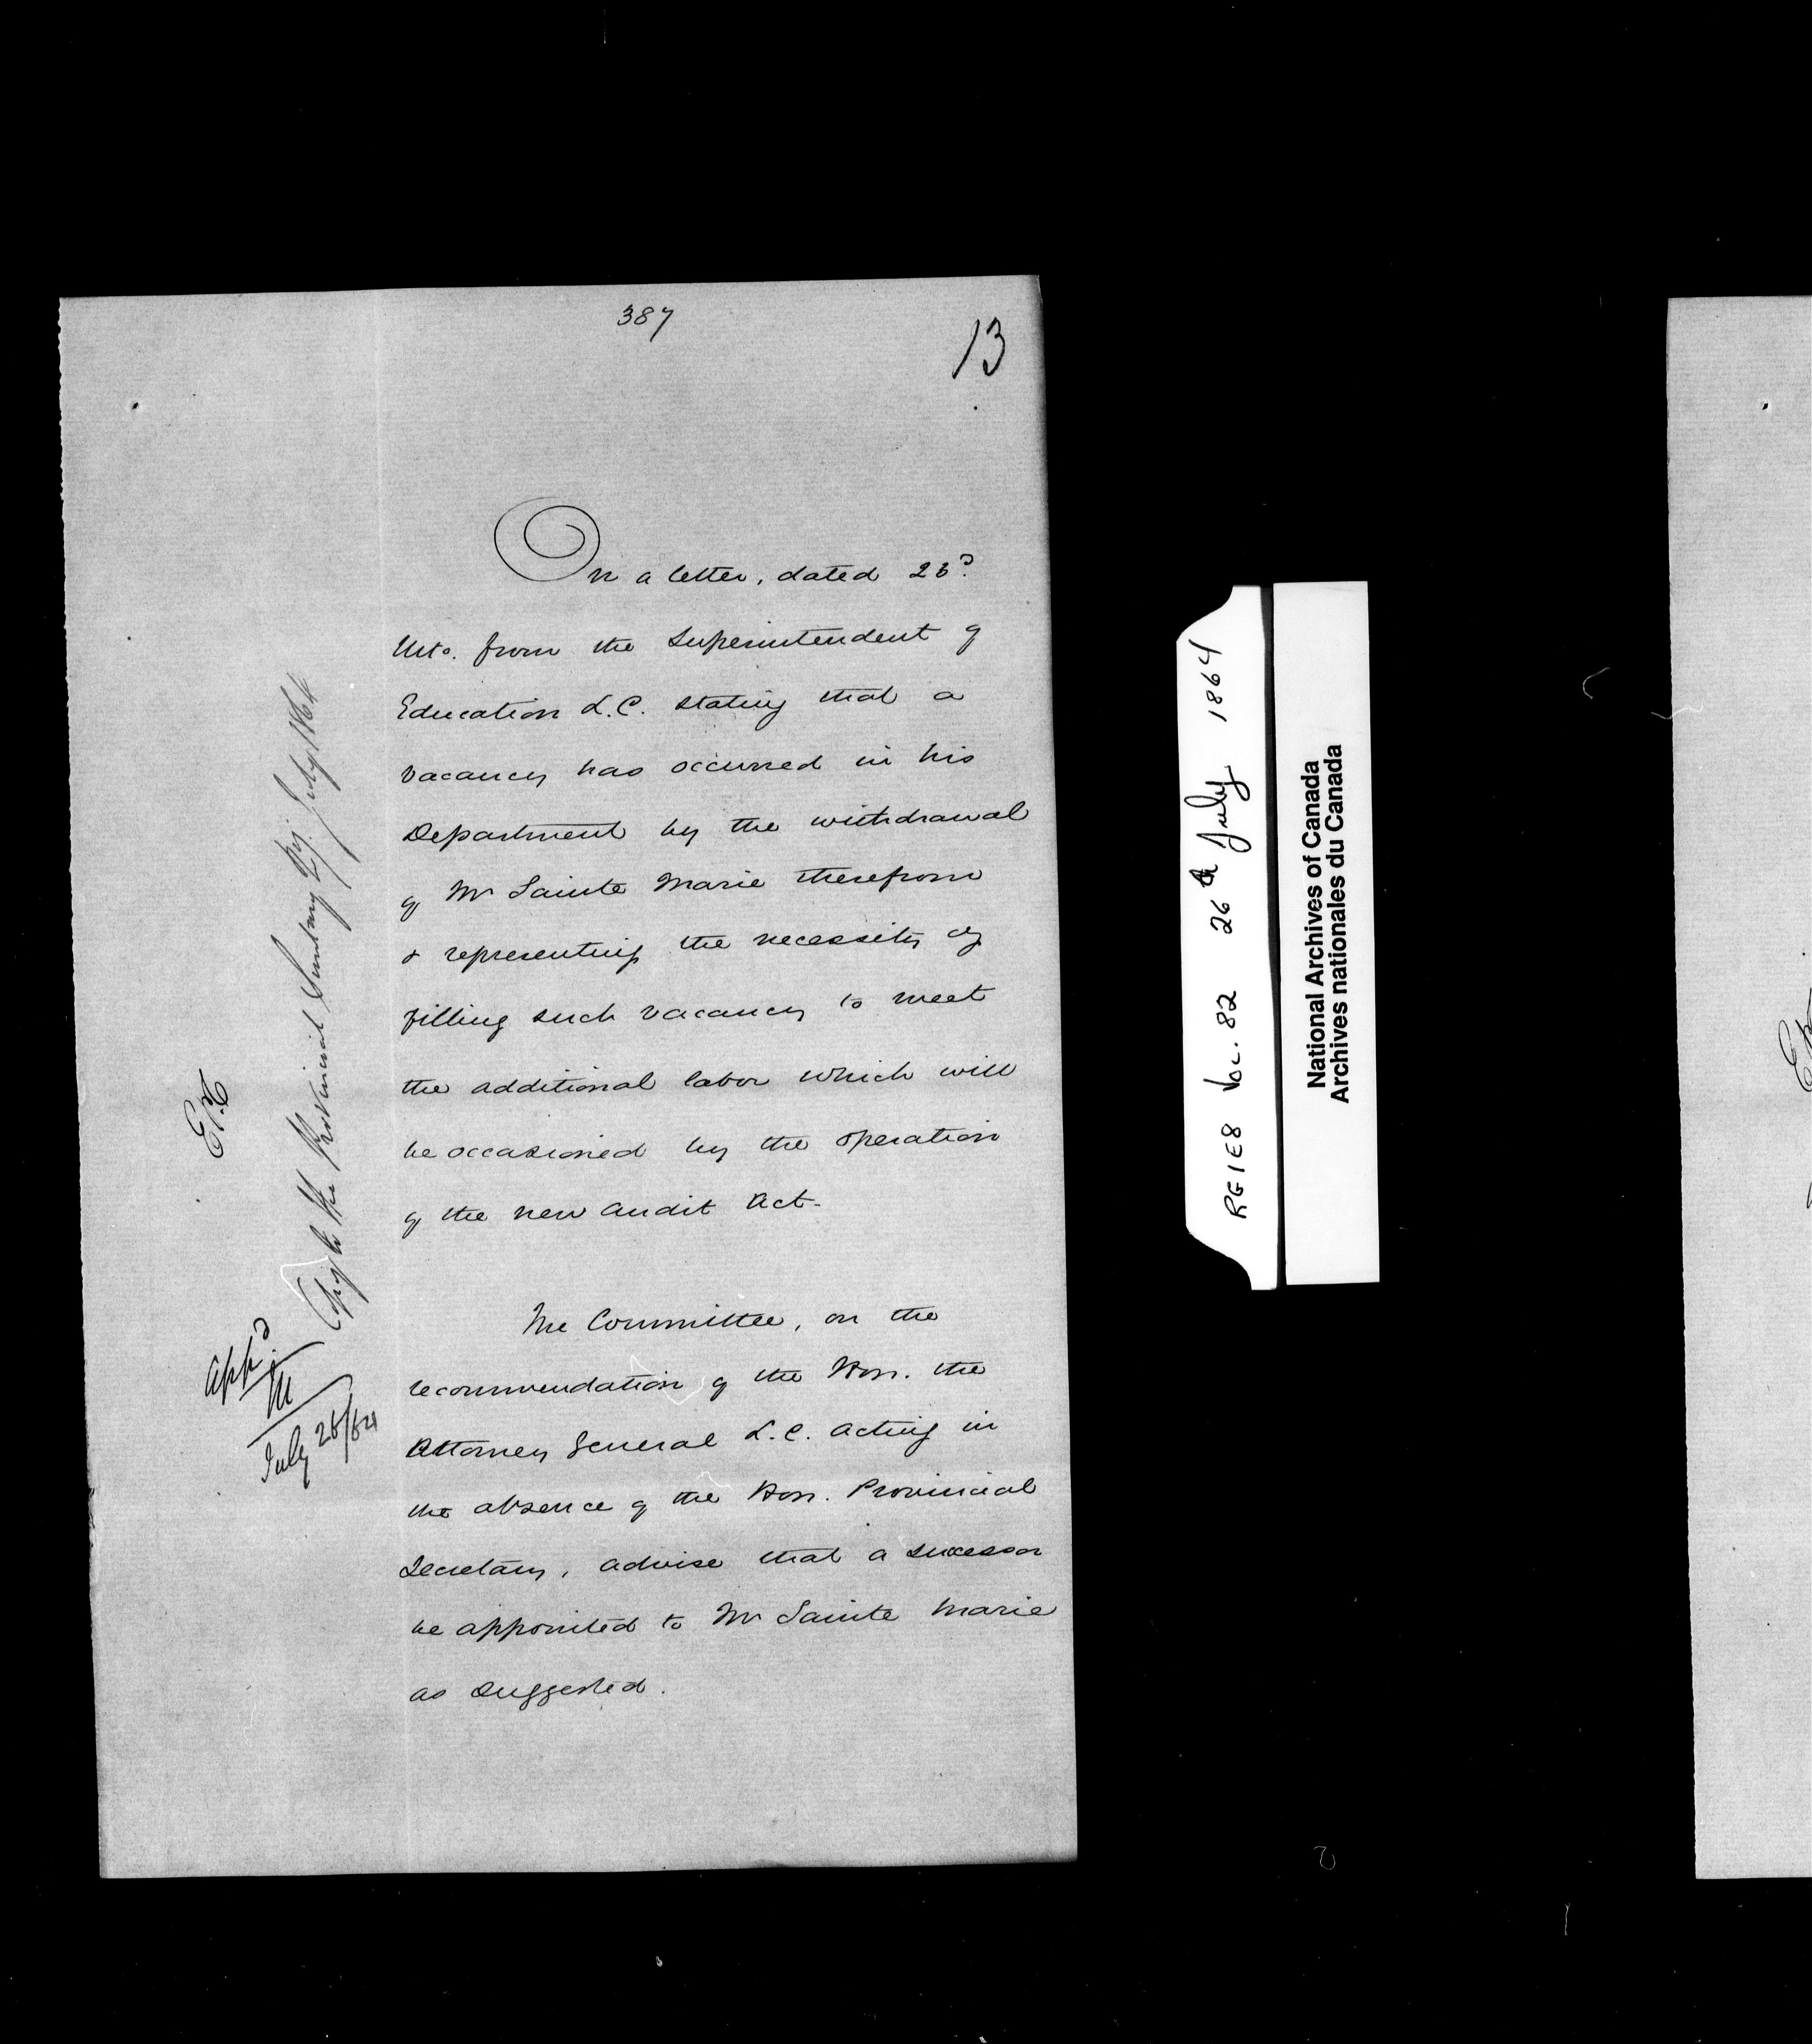 387
13
On a letter, dated 23d.
Ulto. from the Superintendent of
Education L.C. stating that a
vacancy has occurred in his
Department by the withdrawal
of Mr Sainte Marie therefrom
& representing the necessity of
filling such vacancy to meet
the additional labor which will
be occasioned by the operation
of the new Audit Act-
The Committee, on the
recommendation of the Hon. the
Attorney General L.C. acting in
the absence of the Hon. Provincial
Secretary, advise that a successor
be appointed to Mr Sainte Marie
as suggested.
Appd.
M
July 26/64
Copy to the Provincial Secretary July 1864
RG1E8 Vol. 82 26th July 1864
National Archives of Canada
Archives nationales du Canada